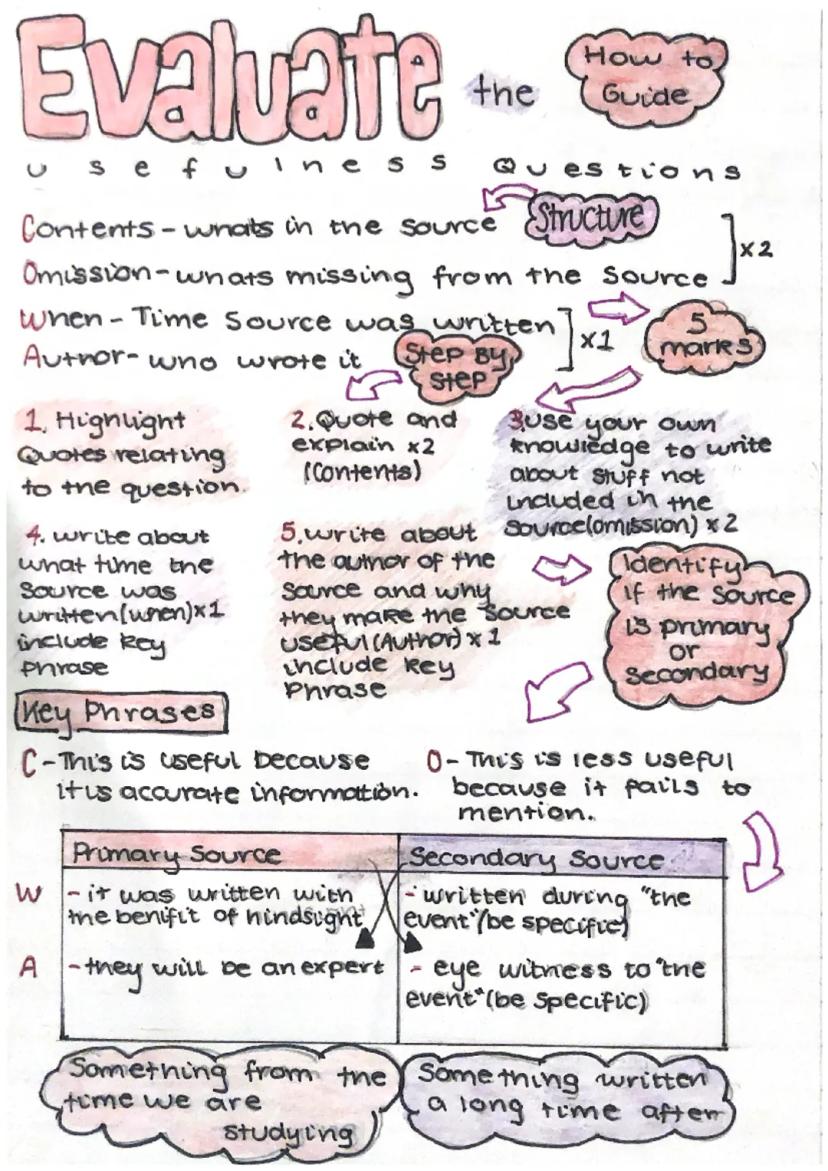 Evaluate the
How to
Guide
usefulness Questions
Structure
Contents - whats in the source
Omission - whats missing from the source
x2
When - Time Source was written
Author - who wrote it
x1
5
marks
Step by
step
1. Highlight
Quotes relating
to the question.
2. Quote and
explain x2
(contents)
3. use your own
knowledge to write
about stuff not
included in the
source (omission) x2
4. write about
what time the
source was
written (when) x1
include key
phrase
5. write about
the author of the
source and why
they make the source
useful (Author) x1
include key
phrase
Identify
if the source
is primary
or
secondary
Key Phrases
C - This is useful because
it is accurate information.
O - This is less useful
because it fails to
mention.
Primary Source
Secondary Source
W
- it was written with
the benifit of hindsight
- written during "the
event" (be specific)
A
- they will be an expert
- eye witness to "the
event" (be specific)
Something from the
time we are
studying
Something written
a long time after